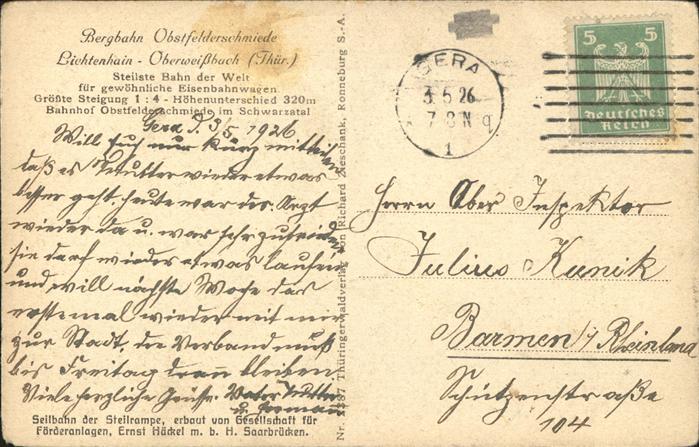 Bergbahn Obstfelderschmiede
Lichtenhain - Oberweißbach (Thür.)
Steilste Bahn der Welt
für gewöhnliche Eisenbahnwagen
Größte Steigung 1 : 4 - Höhenunterschied 320m
Bahnhof Obstfelderschmiede im Schwarzatal
Gera d. 3/5. 1926
Will Euch nur kurz mitteilen
daß es Mutter wieder etwas
besser geht. heute war der Arzt
wieder da u. war sehr zufrieden
sie darf wieder etwas laufen
und will nächste Woche das
erstemal wieder mit mir
zur Stadt, der Verband muß
bis Freitag dran bleiben
Viele herzliche Grüsse. Vater Mutter
u.
Seilbahn der Steilrampe, erbaut von Gesellschaft für
Förderanlagen, Ernst Häckel m. b. H. Saarbrücken.
Nr. 2387 Thüringerwaldverlag von Richard Zieschank, Ronneburg S.-A.
GERA
3.5.26
7-8 N
q
1
5 5
Deutsches
Reich
Herrn Ober Inspektor
Julius Kunik
Barmen i/ Rheinland
Schützenstraße
104